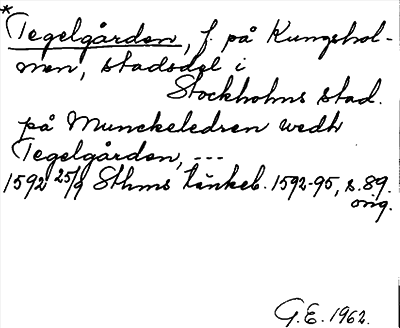 *
Tegelgården, f. på Kungshol-
men, stadsdel i
Stockholms stad.
på Munckeledren wedh
Tegelgården, ---
1592 25/9 Sthms tänkeb. 1592-95, s. 89.
orig.
G.E. 1962.